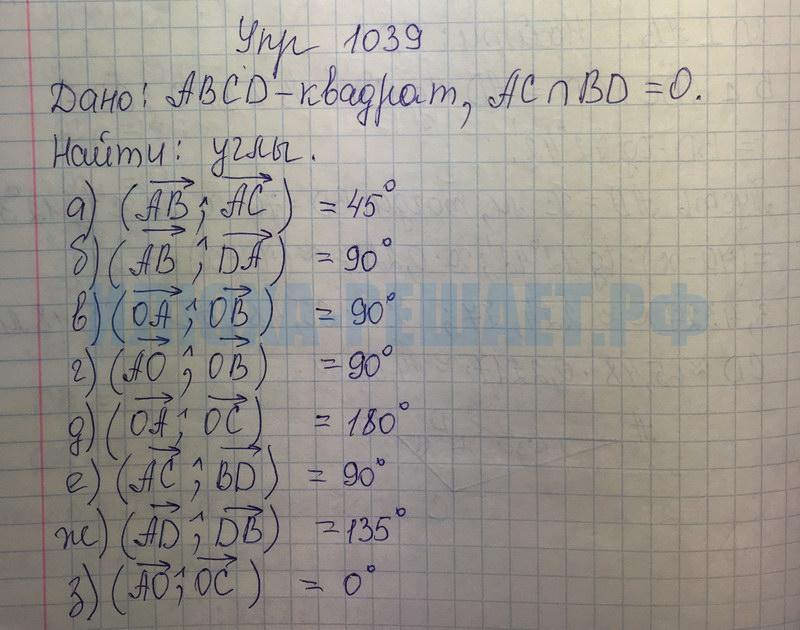 Упр 1039
Дано: ABCD-квадрат, AC∩BD=O.
Найти: углы.
а) (AB^;AC) = 45°
б) (AB^;DA) = 90°
в) (OA^;OB) = 90°
г) (AO^;OB) = 90°
д) (OA^;OC) = 180°
е) (AC^;BD) = 90°
ж) (AD^;DB) = 135°
з) (AO^;OC) = 0°